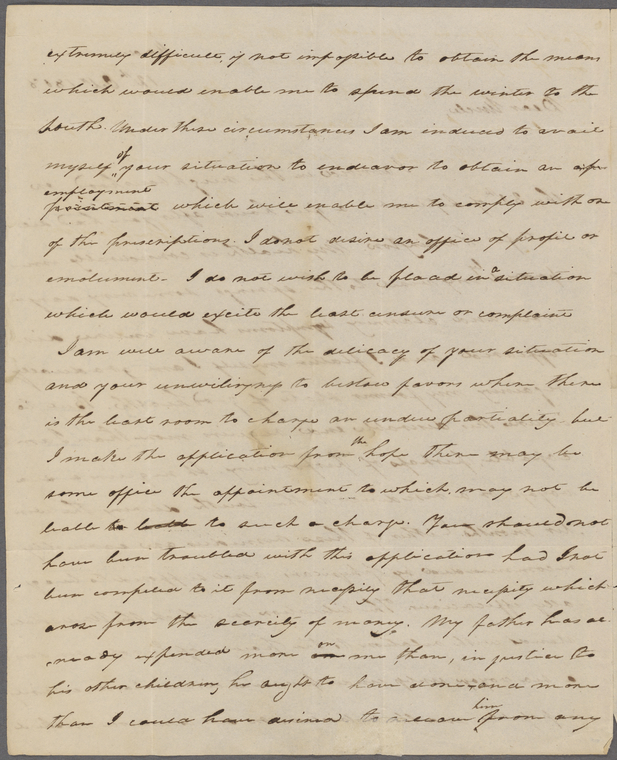 extremely difficult, if not impossible to obtain the means
which would enable me to spend the winter to the
South. Under these circumstances I am induced to avail
myself of your situation to endeavor to obtain an
employment
which will enable me to comply with one
of the prescriptions. I do not desire an office of profit or
emolument - I do not wish to be placed in a situation
which would excite the least censure or complaint
I am well aware of the delicacy of your situation
and your unwillingness to bestow favors when there
is the least room to charge an undue partiality but
I make the application from the hope there may be
some office the appointment to which may not be
liable to such a charge. You should not
have been troubled with this application had I not
been compelled to it from necessity that necessity which
arose from the scarcity of money. My father has al
ready expended more on me than, in justice to
his other children, he ought to have done and more
than I could have desired to him from any